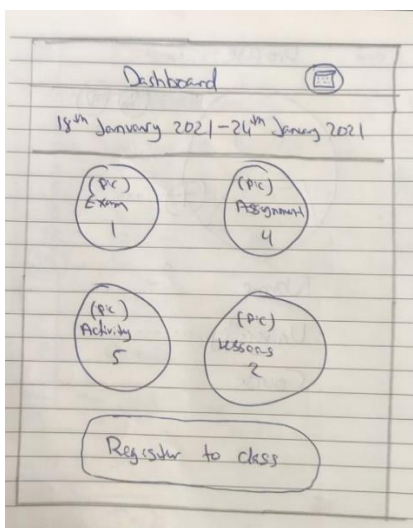 Dashboard
18th January 2021-24th January 2021
(Pic) (Pic)
Exam Assignment
1 4
(Pic) (Pic)
Activity Lessons
5 2
Register to class